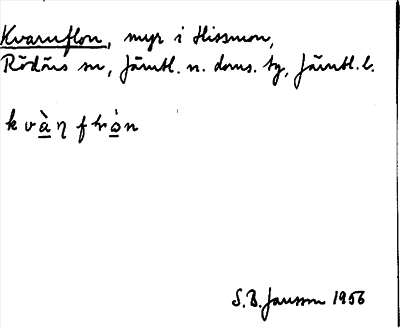 Kvarnflon, myr i Hissmon,
Rödöns sn, Jämtl. n. doms. tg, Jämtl. l.
S. B. Jansson 1956